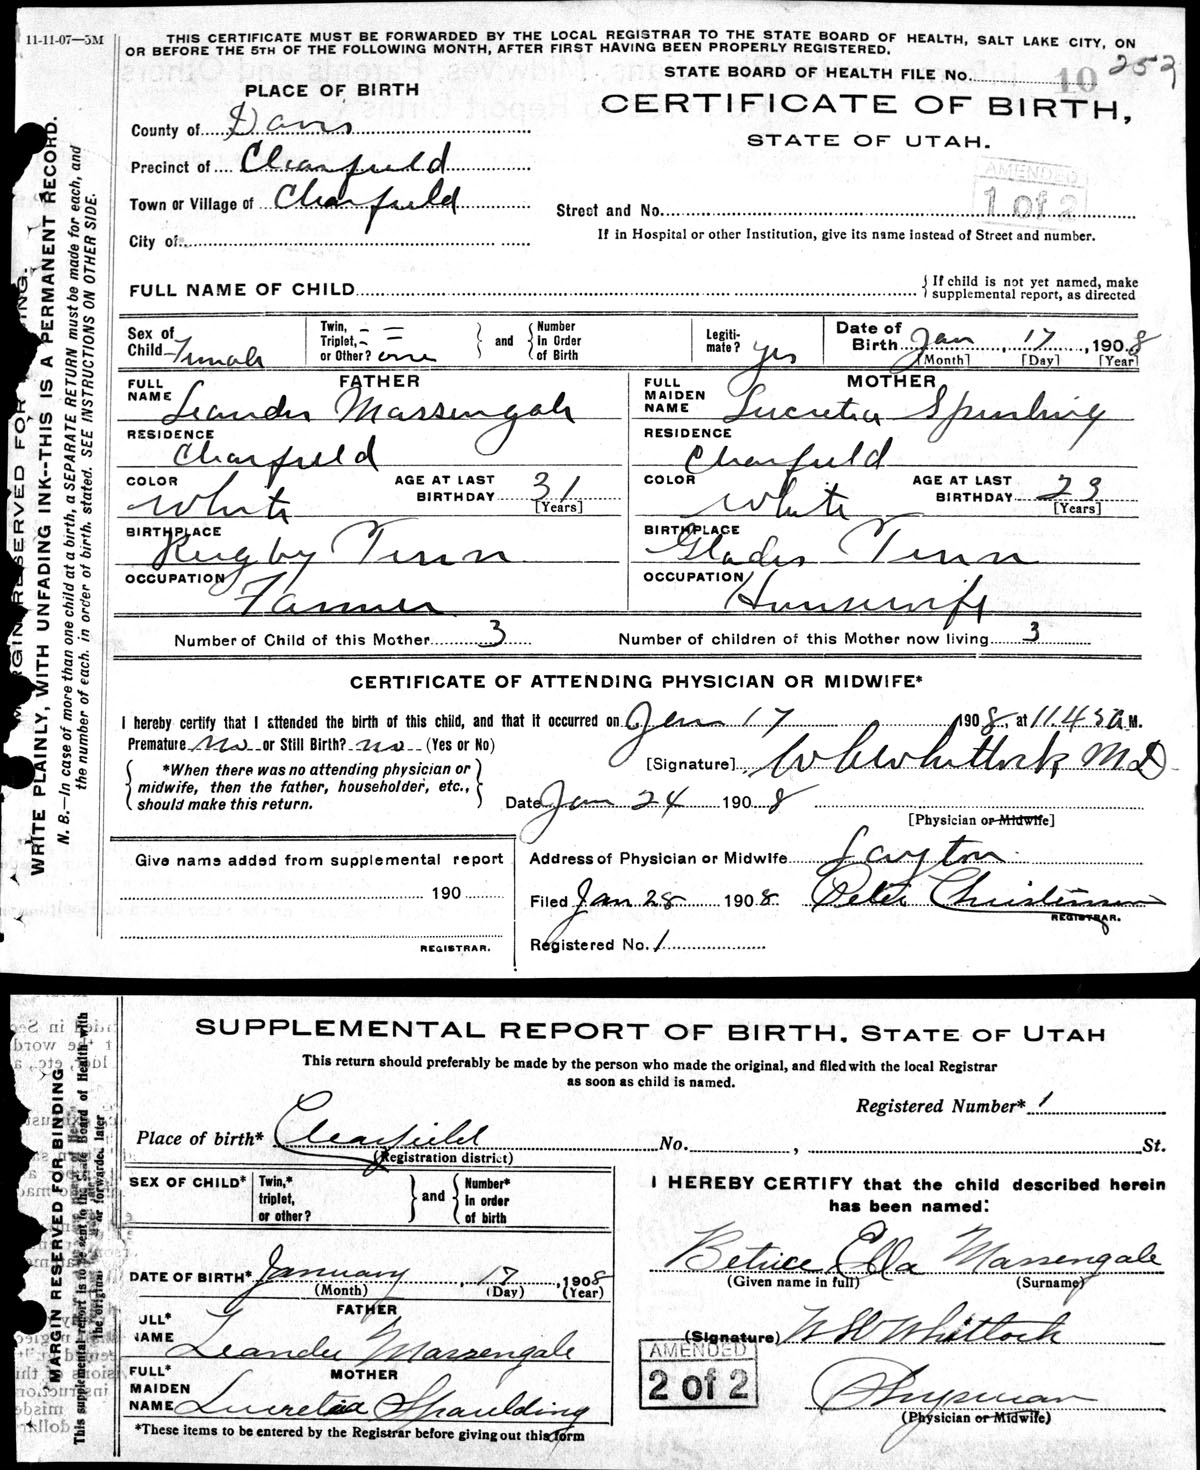 11-11-07—5M
THIS CERTIFICATE MUST BE FORWARDED BY THE LOCAL REGISTRAR TO THE STATE BOARD OF HEALTH, SALT LAKE CITY, ON
OR BEFORE THE 5TH OF THE FOLLOWING MONTH, AFTER FIRST HAVING BEEN PROPERLY REGISTERED.
STATE BOARD OF HEALTH FILE No. 10 252
PLACE OF BIRTH
CERTIFICATE OF BIRTH,
STATE OF UTAH.
County of Davis
Precinct of Clearfield
Town or Village of Clearfield
City of
AMENDED
1 of 2
Street and No.
If in Hospital or other Institution, give its name instead of Street and number.
FULL NAME OF CHILD
{If child is not yet named, make
supplemental report, as directed
Sex of Child Female
Twin, Triplet, or Other? one
and
Number In Order of Birth
Legiti-mate? Yes
Date of Birth Jan 17, 1908
[Month] [Day] [Year]
FATHER
FULL NAME Leander Massengale
RESIDENCE Clearfield
COLOR White
AGE AT LAST BIRTHDAY 31
[Years]
BIRTHPLACE Rugby Tenn
OCCUPATION Farmer
MOTHER
FULL MAIDEN NAME Lucretia
RESIDENCE Clearfield
COLOR White
AGE AT LAST BIRTHDAY 23
[Years]
BIRTHPLACE Glades Tenn
OCCUPATION Housewife
Number of Child of this Mother 3
Number of children of this Mother now living 3
CERTIFICATE OF ATTENDING PHYSICIAN OR MIDWIFE*
I hereby certify that I attended the birth of this child, and that it occurred on Jan 17 1908, at 11.45 a M.
Premature no or Still Birth? no (Yes or No)
*When there was no attending physician or
midwife, then the father, householder, etc.,
should make this return.
[Signature] Whitlock, MD
Date Jan 24 1908
[Physician or Midwife]
Give name added from supplemental report
190
REGISTRAR.
Address of Physician or Midwife Layton
Filed Jan 28 1908 Peter Christensen
REGISTRAR.
Registered No. 1
WRITE PLAINLY, WITH UNFADING INK--THIS IS A PERMANENT RECORD.
N. B.—In case of more than one child at a birth, a SEPARATE RETURN must be made for each, and
the number of each, in order of birth, stated. SEE INSTRUCTIONS ON OTHER SIDE.
SUPPLEMENTAL REPORT OF BIRTH, STATE OF UTAH
This return should preferably be made by the person who made the original, and filed with the local Registrar
as soon as child is named.
Registered Number* 1
Place of birth* Clearfield No. , St.
(Registration district)
SEX OF CHILD*
Twin,* triplet, or other?
and
Number* In order of birth
DATE OF BIRTH* January, 17, 1908
(Month) (Day) (Year)
FATHER
FULL* NAME Leander Massengale
MOTHER
FULL* MAIDEN NAME Lucretia Spaulding
*These items to be entered by the Registrar before giving out this form
I HEREBY CERTIFY that the child described herein
has been named:
Betrice Ella Massengale
(Given name in full) (Surname)
(Signature) Whitlock
AMENDED
2 of 2
Physician
(Physician or Midwife)
MARGIN RESERVED FOR BINDING